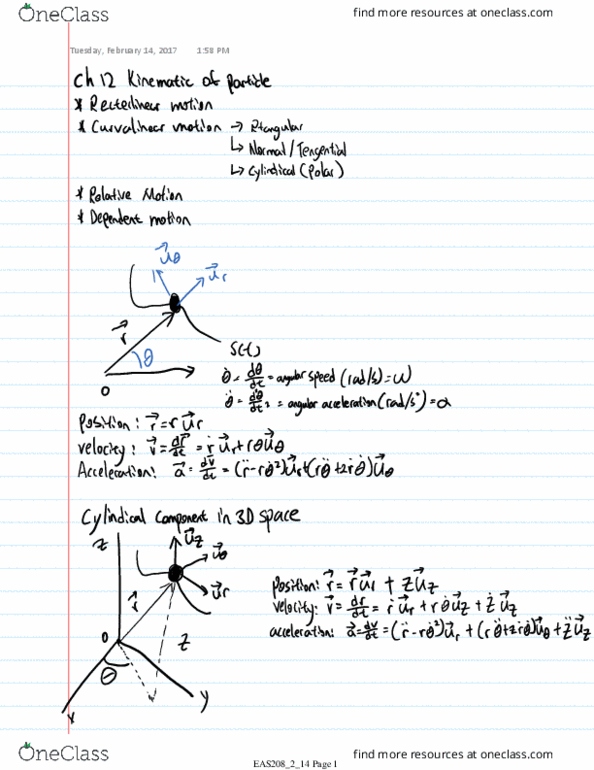 OneClass find more resources at oneclass.com
Tuesday, February 14, 2017 1:58 PM
Ch 12 Kinematic of Particle
* Recterlinear motion
* Curvalinear motion → Rtangular
↳ Normal/Tengential
↳ Cylindical (Polar)
* Relative Motion
* Dependent motion
u⃗θ
u⃗r
r⃗
θ
O
S(t)
θ̇ = dθ/dt = angular speed (rad/s) = ω
θ̈ = d²θ/dt² = angular acceleration (rad/s²) = α
Position: r⃗ = r u⃗r
Velocity: v⃗ = dr⃗/dt = ṙ u⃗r + rθ̇ u⃗θ
Acceleration: a⃗ = dv⃗/dt = (r̈ - rθ̇²)u⃗r + (rθ̈ + 2ṙθ̇)u⃗θ
Cylindical Component in 3D space
z
u⃗z
u⃗θ
u⃗r
r⃗
O
z
θ
x
y
Position: r⃗ = r⃗ u⃗r + z u⃗z
velocity: v⃗ = dr/dt = ṙ u⃗r + rθ̇ u⃗z + ż u⃗z
acceleration: a⃗ = dv/dt = (r̈ - rθ̇²)u⃗r + (rθ̈ + 2ṙθ̇)u⃗θ + z̈ u⃗z
OneClass find more resources at oneclass.com
EAS208_2_14 Page 1